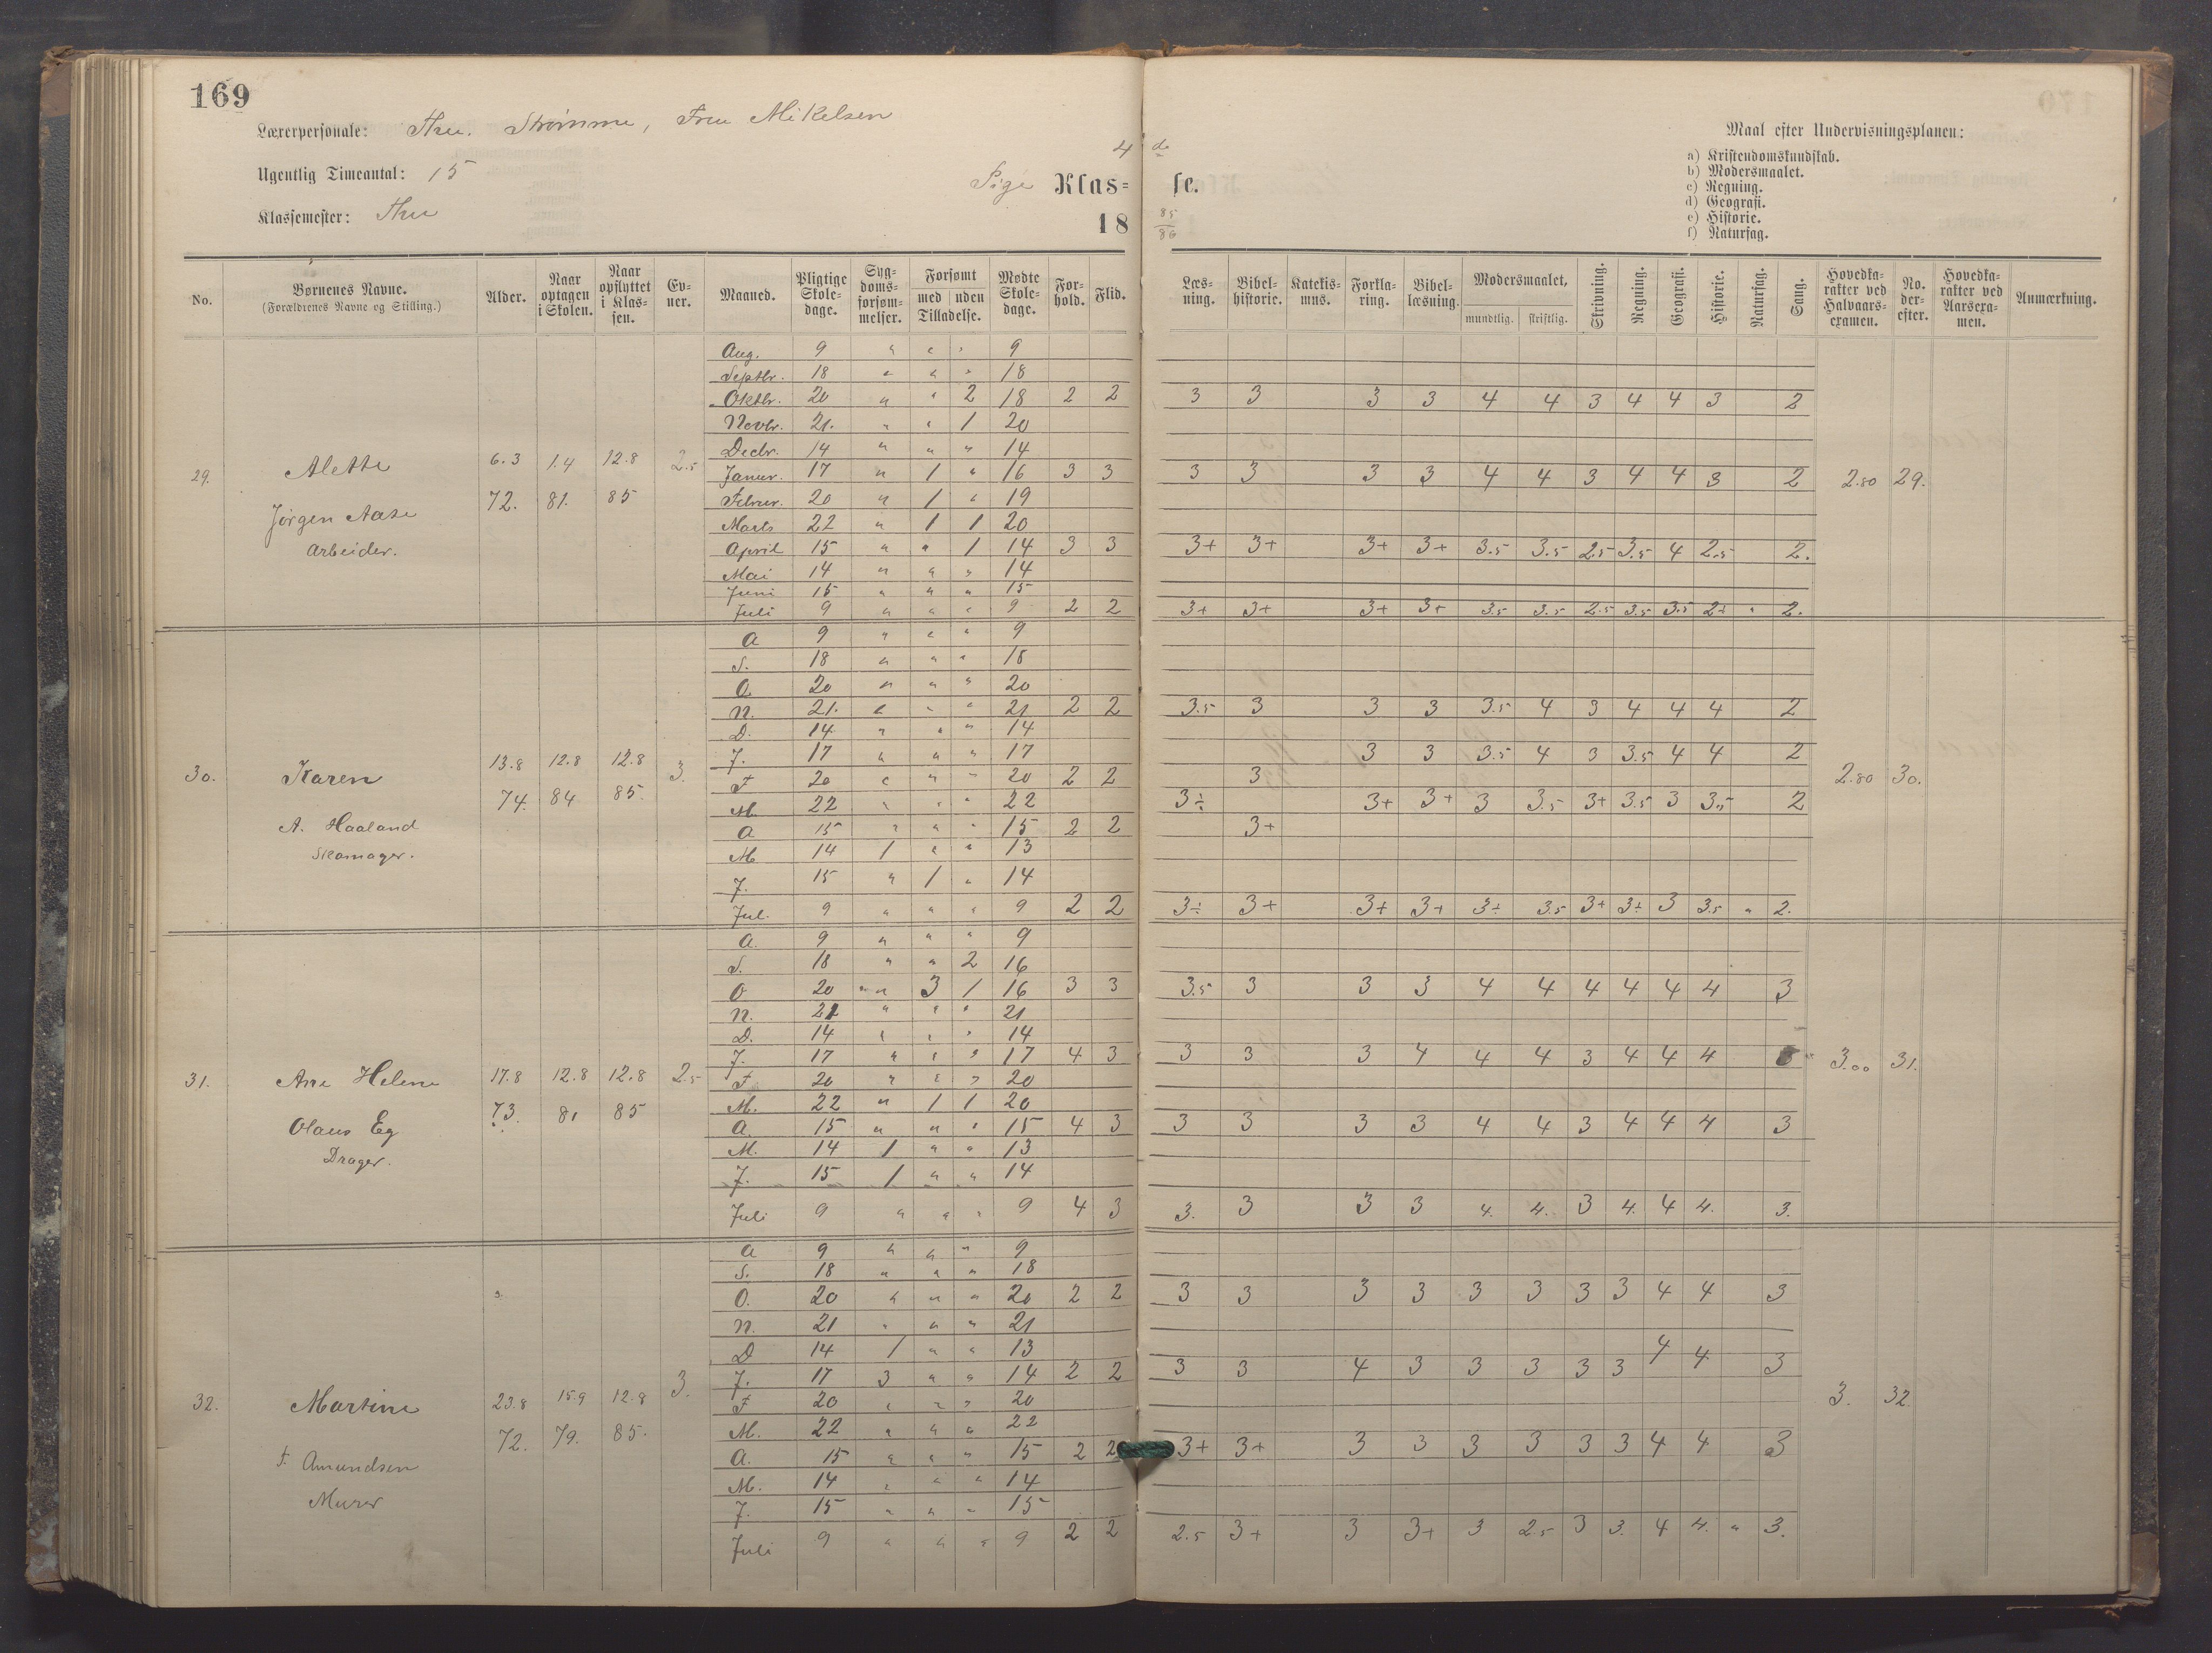 169
Lærerpersonale: Thu. Strømme, Fru Mikelsen
Ugentlig Timeantal: 15
Klassemester: Thu
4 de
Pige Klas= se.
18 85/86
Maal efter Undervisningsplanen:
a) Kristendomskundskab.
b) Modersmaalet.
c) Regning.
d) Geografi.
e) Historie.
f) Naturfag.
No. Børnenes Navne. (Forældrenes Navne og Stilling.) Alder. Naar optagen i Skolen. Naar opflyttet i Klassen. Evner. Maaned. Pligtige Skoledage. Sygdomsforsømmelser. Forsømt med uden Tilladelse. Mødte Skoledage. Forhold. Flid. Læsning. Bibelhistorie. Katekismus. Forklaring. Bibellæsning. Modersmaalet, mundtlig. skriftlig. Skrivning. Regning. Geografi. Historie. Naturfag. Sang. Hovedkarakter ved Halvaarsexamen. No. derefter. Hovedkarakter ved Aarsexamen. Anmærkning.
29. Alette
Jørgen Aase
Arbeider.
6.3 72. 1.4 81. 12.8 85 2.5
Aug. 9 " " " 9
Septbr. 18 " " " 18
Oktbr. 20 " " 2 18 2 2 3 3 3 3 4 4 3 4 4 3 2
Novbr. 21. " " 1 20
Decbr. 14 " " " 14
Januar. 17 " 1 " 16 3 3 3 3 3 3 4 4 3 4 4 3 2 2.80 29.
Februar. 20 " 1 " 19
Marts 22 " 1 1 20
April 15 " " 1 14 3 3 3+ 3+ 3+ 3+ 3.5 3.5 2.5 3.5 4 2.5 2.
Mai 14 " " " 14
Juni 15 " " " 15
Juli 9 " " " 9 2 2 3+ 3+ 3+ 3+ 3.5 3.5 2.5 3.5 3.5 2± " 2.
30. Karen
A. Haaland
Skomager.
13.8 74. 12.8 84 12.8 85. 3.
A 9 " " " 9
S. 18 " " " 18
O 20 " " " 20
N. 21. " " " 21 2 2 3.5 3 3 3 3.5 4 3 4 4 4 2
D. 14 " " " 14
J. 17 " " " 17 3 3 3.5 4 3 3.5 4 4 2
F 20 " " " 20 2 2 3 2.80 30.
M. 22 " " " 22 3÷ 3+ 3+ 3 3.5 3+ 3.5 3 3.5 2
A 15 " " " 15 2 2 3+
M 14 1 " " 13
J. 15 " 1 " 14
Jul. 9 " " " 9 2 2 3÷ 3+ 3+ 3+ 3÷ 3.5 3+ 3± 3 3.5 " 2.
31. Ane Helene
Olaus Eg
Drager.
17.8 73. 12.8 81 12.8 85 2.5
A. 9 " " " 9
S. 18 " " 2 16
O 20 " " 3 1 16 3 3 3.5 3 3 3 4 4 4 4 4 4 3
N. 21 " " " 21
D. 14 " " " 14
J. 17 " " " 17 4 3 3 3 3 4 4 4 3 4 4 4 3.00 31.
F 20 " " " 20
M. 22 " 1 1 20
A. 15 " " " 15 4 3 3 3 3 3 4 4 3 4 4 4 3
M. 14 1 " " 13
J. 15 1 " " 14
Juli 9 " " " 9 4 3 3. 3 3 3 4. 4. 3 4. 4 4. 3.
32. Martine
F. Amundsen
Murer
23.8 72. 15.9 79. 12.8 85. 3.
A 9 " " " 9
S. 18 " " " 18
O. 20 " " " 20 2 2 3 3 3 3 3 3 3 3 4 4 3
N. 21 " " " 21
D 14 1 " " 13
J. 17 3 " " 14 2 2 3 3 4 3 3 3 3 3 4 4 3
F 20 " " " 20 3. 32.
M. 22 " " " 22
A. 15 " " " 15 2 2 3+ 3+ 3 3 3 3 3 3 4 4 3
M. 14 " " " 14
J. 15 " " " 15
Juli 9 " " " 9 2 2 2.5 3+ 3 3+ 3 2.5 3 3. 4 4. " 3.